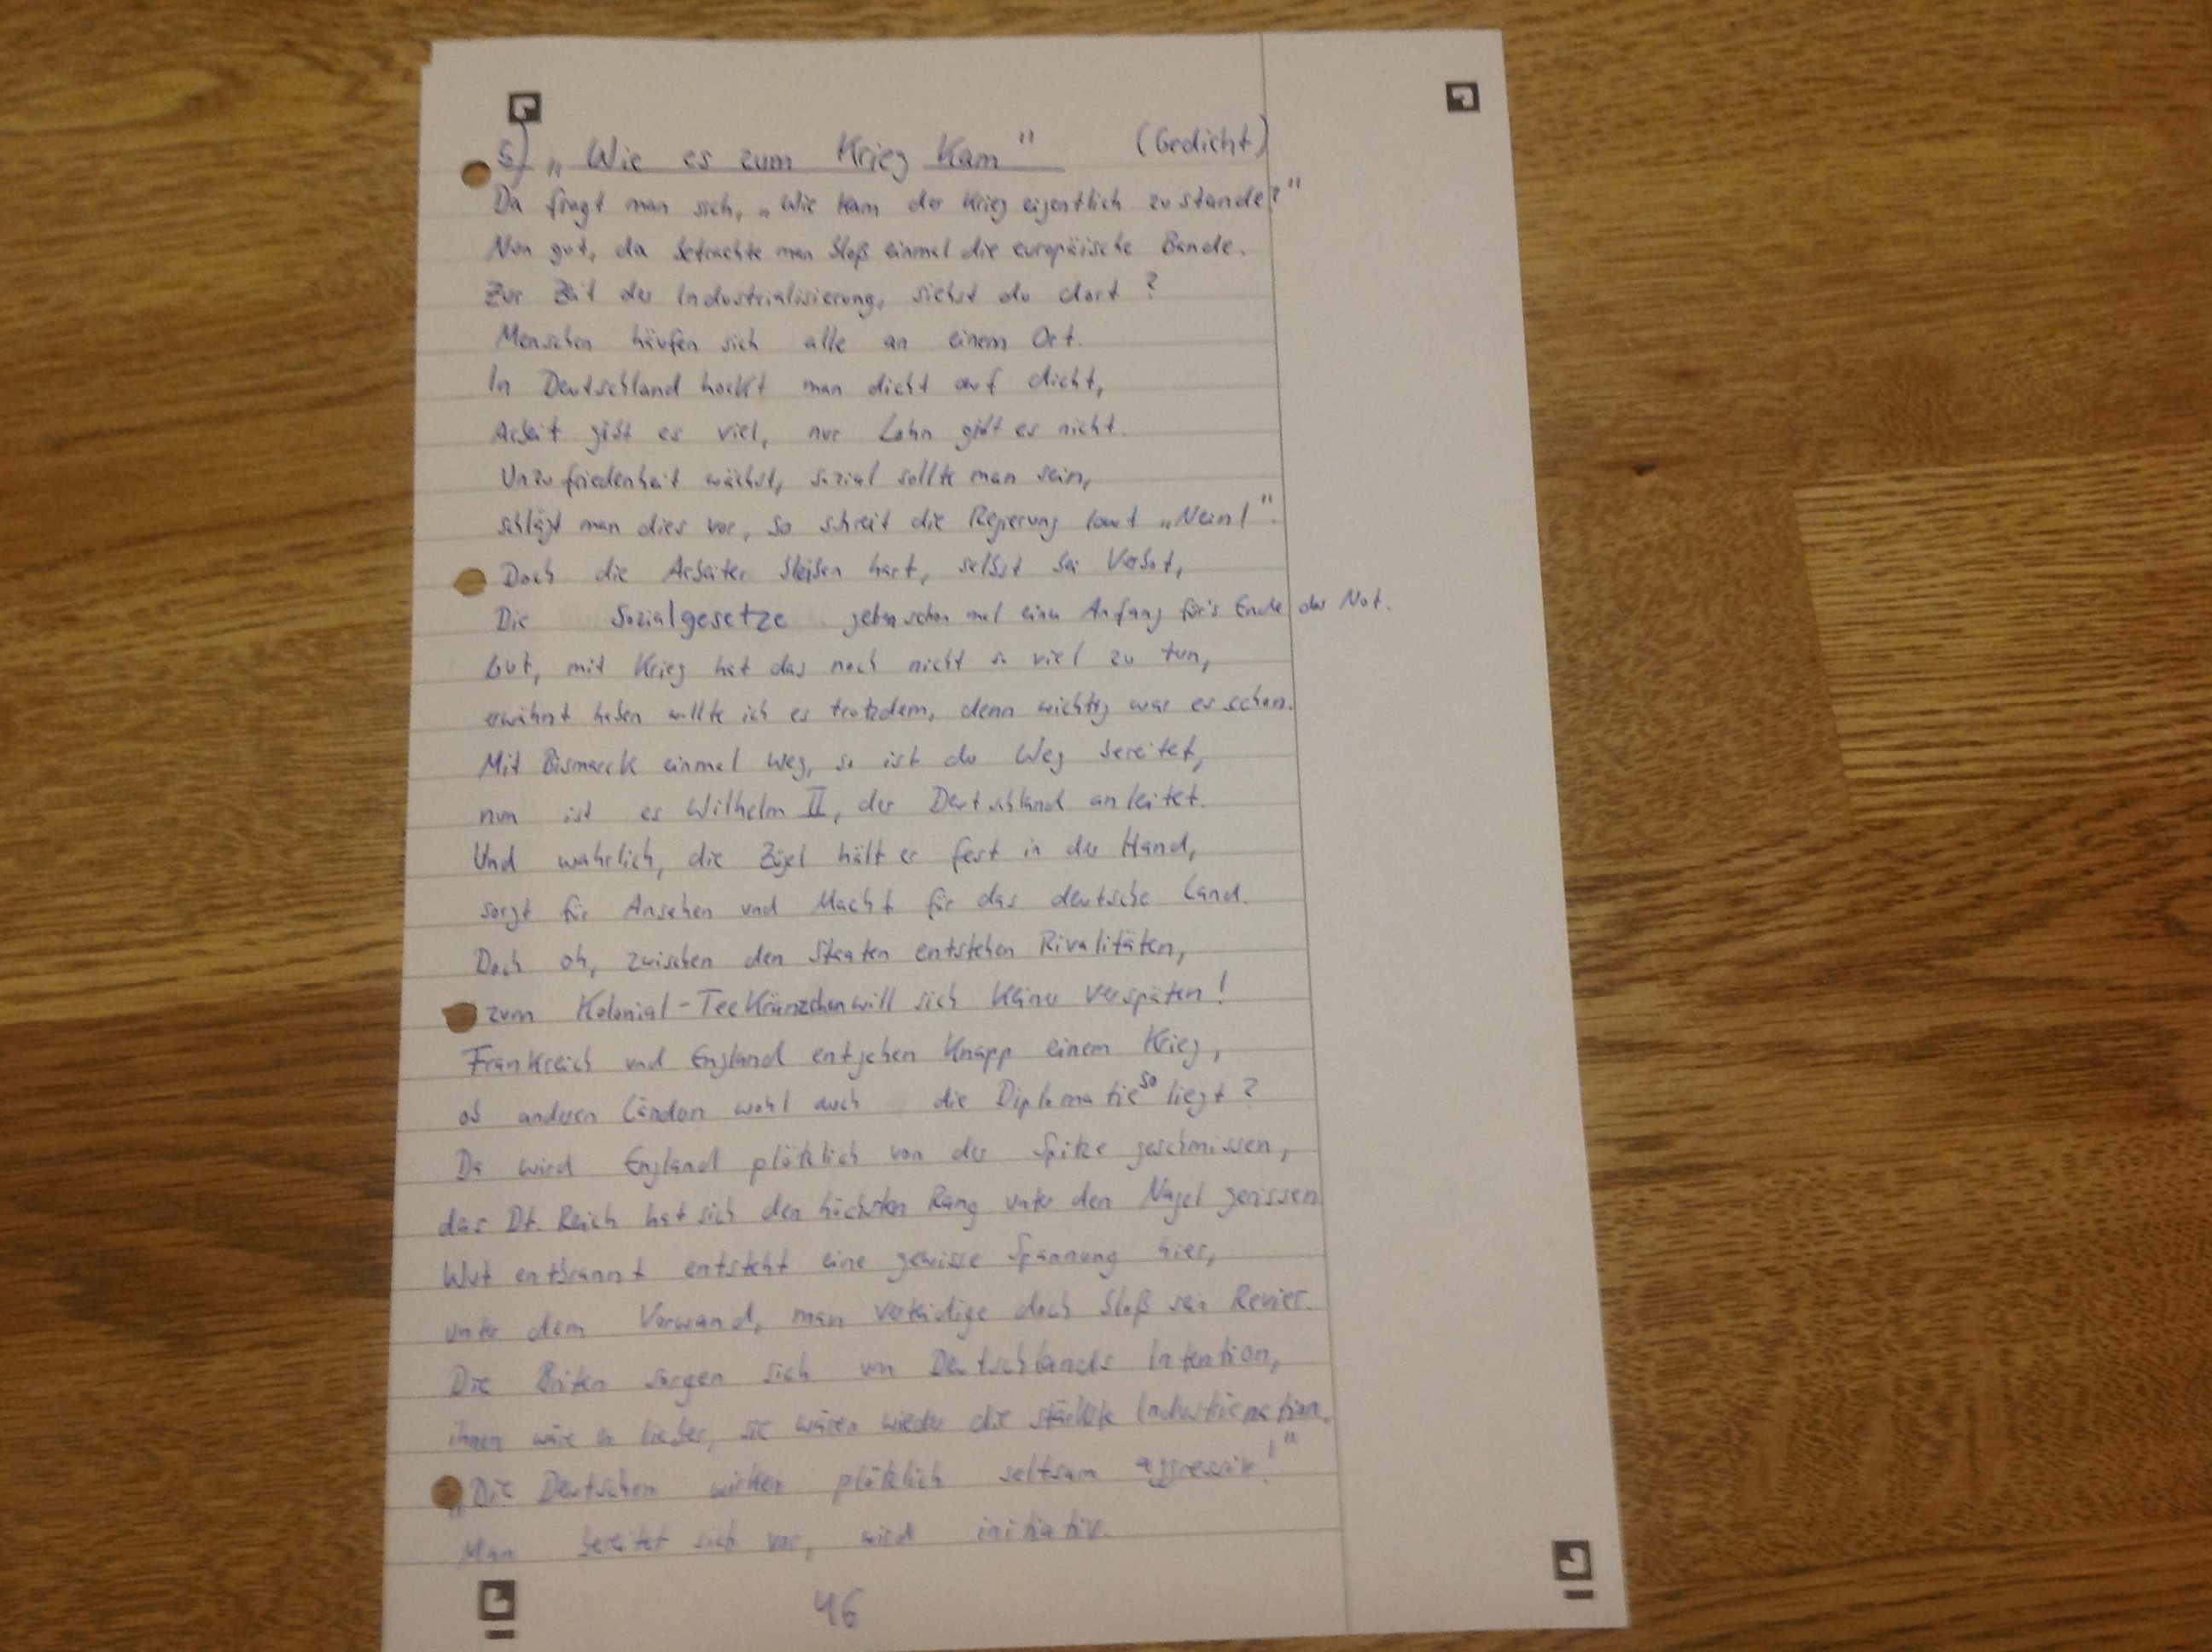 5) „Wie es zum Krieg kam" (Gedicht)
Da fragt man sich, „Wie kam der Krieg eigentlich zustande?"
Nun gut, da betrachte man bloß einmal die europäische Bande.
Zur Zeit der Industrialisierung, siehst du dort?
Menschen häufen sich alle an einem Ort.
In Deutschland hockt man dicht auf dicht,
Arbeit gibt es viel, nur Lohn gibt es nicht.
Unzufriedenheit wächst, sozial sollte man sein,
schlägt man dies vor, so schreit die Regierung laut „Nein!".
Doch die Arbeiter bleiben hart, selbst bei Verbot,
Die Sozialgesetze geben schon mal einen Anfang für's Ende der Not.
Gut, mit Krieg hat das noch nicht so viel zu tun,
erwähnt haben wollte ich es trotzdem, denn wichtig war es schon.
Mit Bismarck einmal weg, so ist der Weg bereitet,
nun ist es Wilhelm II, der Deutschland anleitet.
Und wahrlich, die Zügel hält er fest in der Hand,
sorgt für Ansehen und Macht für das deutsche Land.
Doch oh, zwischen den Staaten entstehen Rivalitäten,
zum Kolonial-Teekränzchen will sich keiner verspäten!
Frankreich und England entgehen knapp einem Krieg,
ob anderen Ländern wohl auch die Diplomatie so liegt?
Da wird England plötzlich von der Spitze geschmissen,
das Dt. Reich hat sich den höchsten Rang unter den Nagel gerissen.
Wut entbrannt entsteht eine gewisse Spannung hier,
unter dem Vorwand, man verteidige doch bloß sein Revier.
Die Briten sorgen sich um Deutschlands Intention,
ihnen wäre es lieber, sie wären wieder die stärkste Industrienation.
„Die Deutschen wirken plötzlich seltsam aggressiv!"
Man bereitet sich vor, wird initiativ.
46